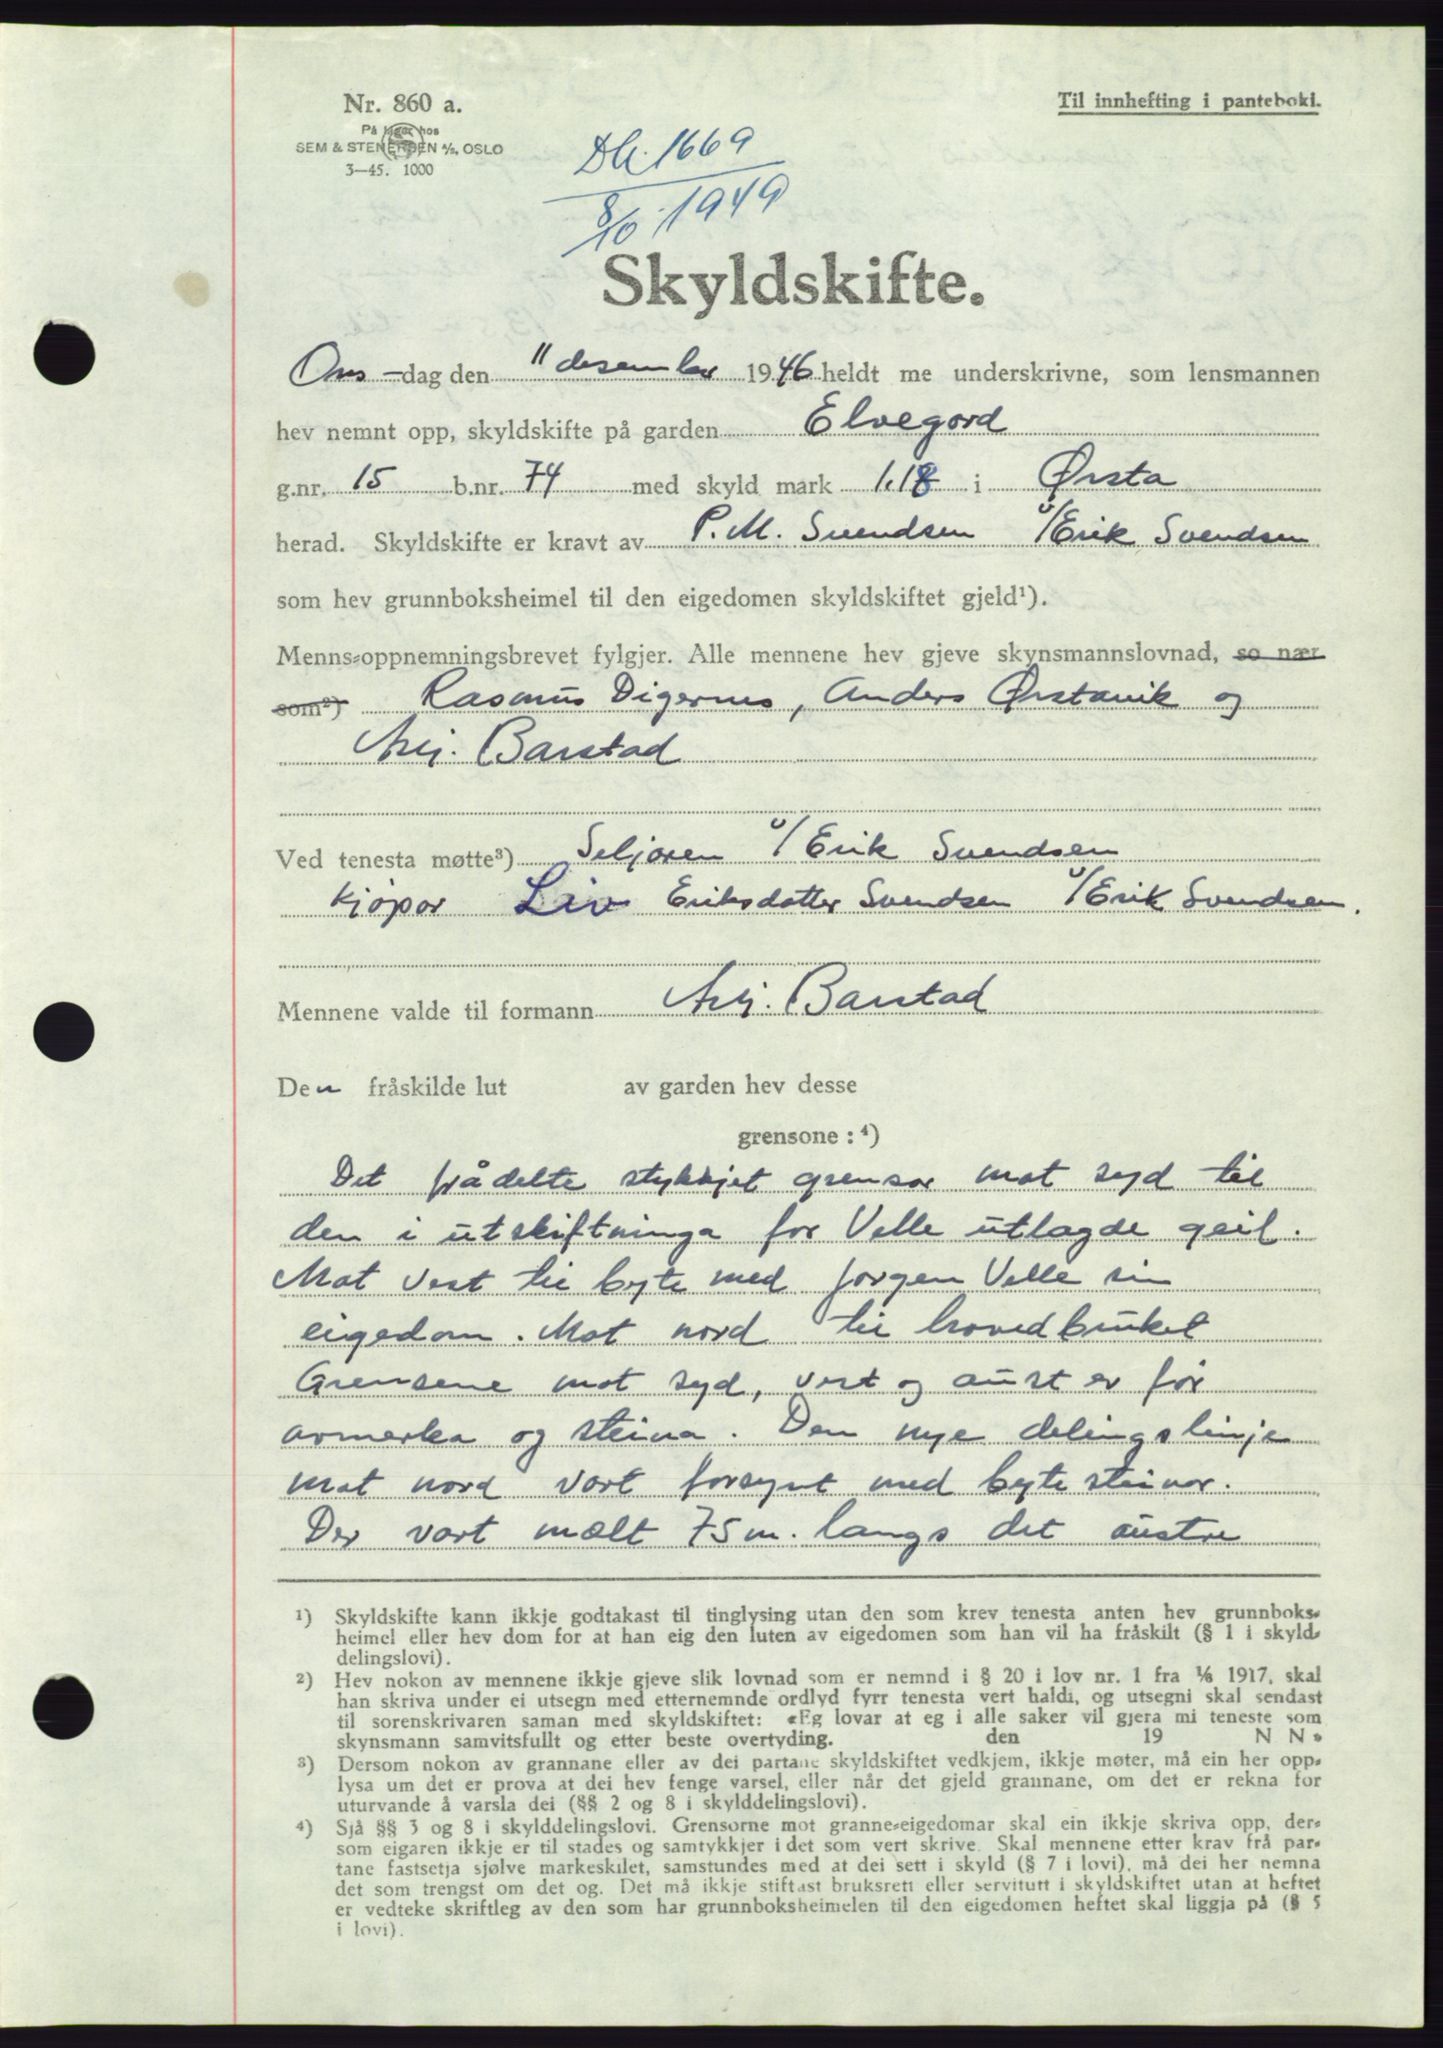 Nr. 860 a.
På lager hos
SEM & STENERSEN A/S, OSLO
3—45. 1000
Til innhefting i panteboki.
Db. 1669
8/10 1949
Skyldskifte.
Ons-dag den 11 desember 1946 heldt me underskrivne, som lensmannen
hev nemnt opp, skyldskifte på garden Elvegord
g.nr. 15 b.nr. 74 med skyld mark 1.18 i Ørsta
herad. Skyldskifte er kravt av P. M. Svendsen v/Erik Svendsen
som hev grunnboksheimel til den eigedomen skyldskiftet gjeld¹).
Menns-oppnemningsbrevet fylgjer. Alle mennene hev gjeve skynsmannslovnad, so nær
som²) Rasmus Digernes, Anders Ørstavik og
Asbj. Barstad
Ved tenesta møtte³) Seljaren v/Erik Svendsen
kjøpar Liv Eriksdatter Svendsen v/Erik Svendsen.
Mennene valde til formann Asbj. Barstad
Den fråskilde lut av garden hev desse
grensone : ⁴)
Det frådelte stykkjet grensar mot syd til
den i utskiftninga for Velle utlagde geil.
Mot vest til byte med Jørgen Velle sin
eigedom. Mot nord til hovedbruket
Grensene mot syd, vest og aust er før
avmerka og steina. Den nye delingslinje
mot nord vart forsynt med bytesteinar.
Der vart mælt 75 m. langs det austre
1) Skyldskifte kann ikkje godtakast til tinglysing utan den som krev tenesta anten hev grunnboks-
heimel eller hev dom for at han eig den luten av eigedomen som han vil ha fråskilt (§ 1 i skyld-
delingslovi).
2) Hev nokon av mennene ikkje gjeve slik lovnad som er nemnd i § 20 i lov nr. 1 fra 1/8 1917, skal
han skriva under ei utsegn med etternemnde ordlyd fyrr tenesta vert haldi, og utsegni skal sendast
til sorenskrivaren saman med skyldskiftet: «Eg lovar at eg i alle saker vil gjera mi teneste som
skynsmann samvitsfullt og etter beste overtyding. den 19 N N»
3) Dersom nokon av grannane eller av dei partane skyldskiftet vedkjem, ikkje møter, må ein her opp-
lysa um det er prova at dei hev fenge varsel, eller når det gjeld grannane, om det er rekna for
uturvande å varsla dei (§§ 2 og 8 i skylddelingslovi).
4) Sjå §§ 3 og 8 i skylddelingslovi. Grensorne mot granne-eigedomar skal ein ikkje skriva opp, der-
som eigaren ikkje er til stades og samtykkjer i det som vert skrive. Skal mennene etter krav frå par-
tane fastsetja sjølve markeskilet, samstundes med at dei sett i skyld (§ 7 i lovi), må dei her nemna
det som trengst om det og. Det må ikkje stiftast bruksrett eller servitutt i skyldskiftet utan at heftet
er vedteke skriftleg av den som har grunnboksheimelen til den eigedomen heftet skal liggja på (§ 5
i lovi).